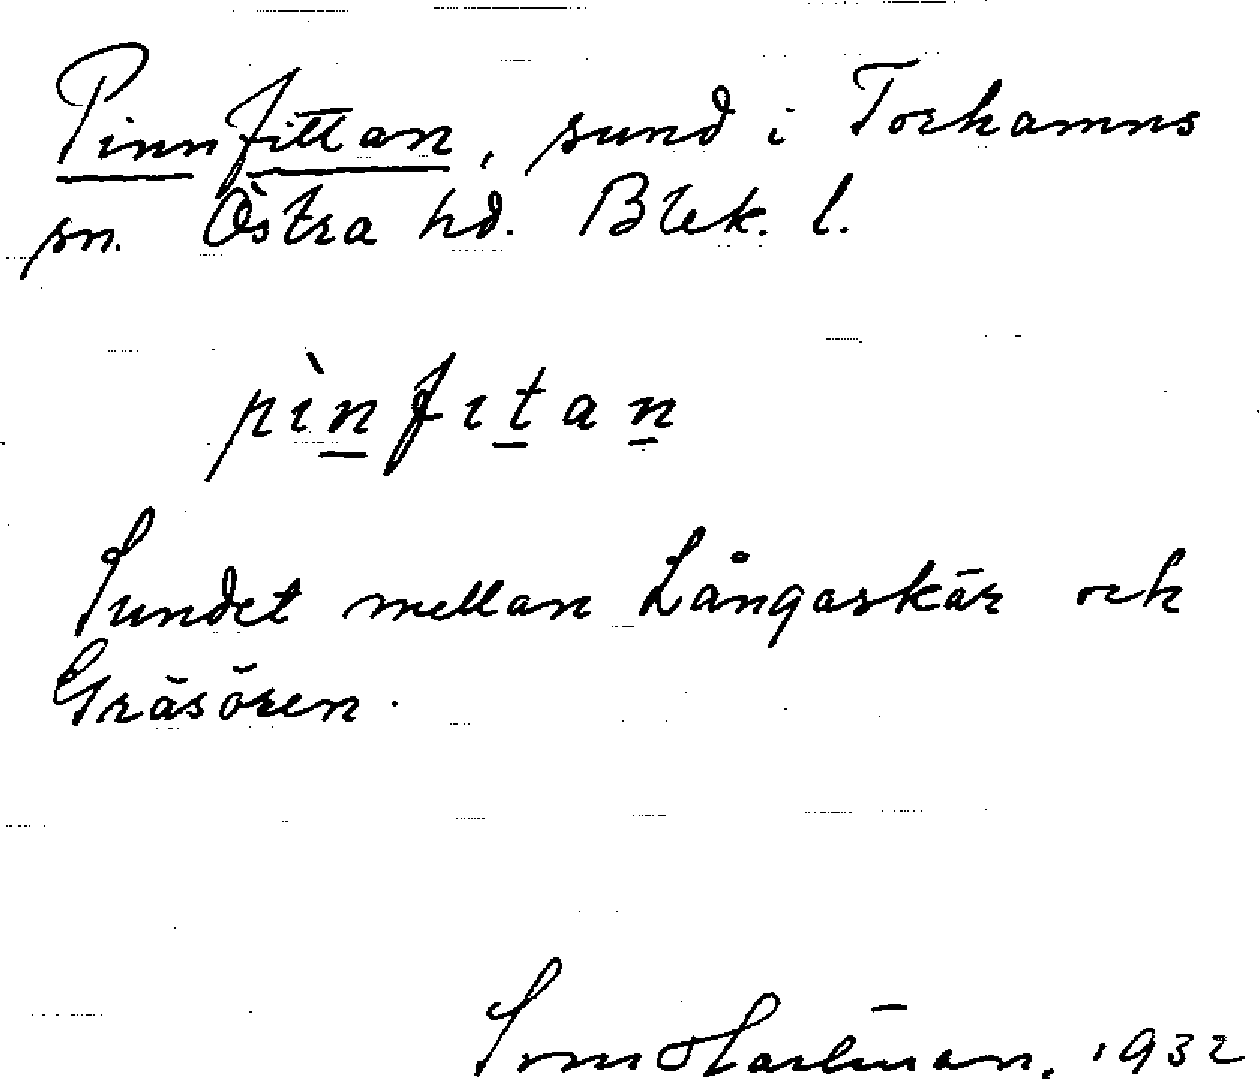 Pinnfittan, sund i Torhamns
sn. Östra hd. Blek. l.
pìnfıtan
Sundet mellan Långaskär och
Gräsören.
Sven Hartman. 1932